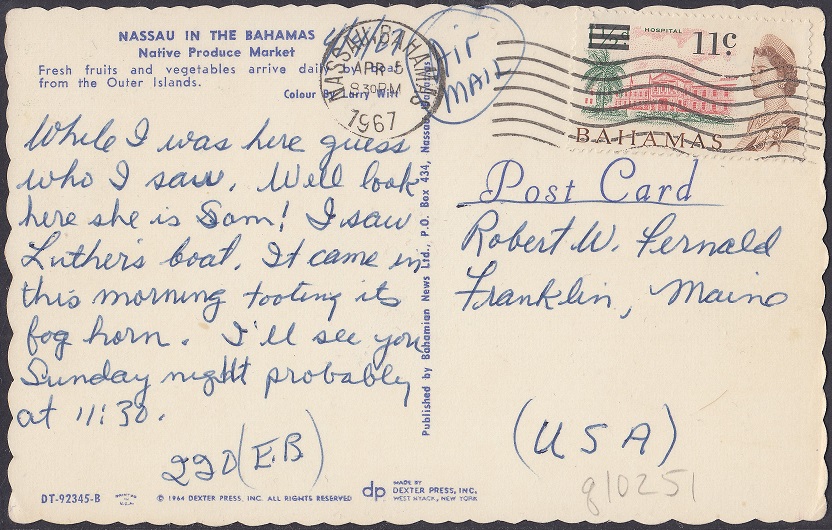 NASSAU IN THE BAHAMAS
Native Produce Market
Fresh fruits and vegetables arrive daily by boat
from the Outer Islands.
Colour By Larry Witt
4/4/67
NASSAU BAHAMAS
APR 5
830PM
1967
Air
MAIL
HOSPITAL
1½c
11c
BAHAMAS
While I was here guess
who I saw. Well look
here she is Sam! I saw
Luther's boat. It came in
this morning tooting its
fog horn. I'll see you
Sunday night probably
at 11:30.
(EB)
Published by Bahamian News Ltd., P.O. Box 434, Nassau, Bahamas
Post Card
Robert W. Fernald
Franklin, Maine
(USA)
g10251
DT-92345-B
© 1964 DEXTER PRESS, INC. ALL RIGHTS RESERVED
dp
MADE BY
DEXTER PRESS, INC.
WEST NYACK, NEW YORK